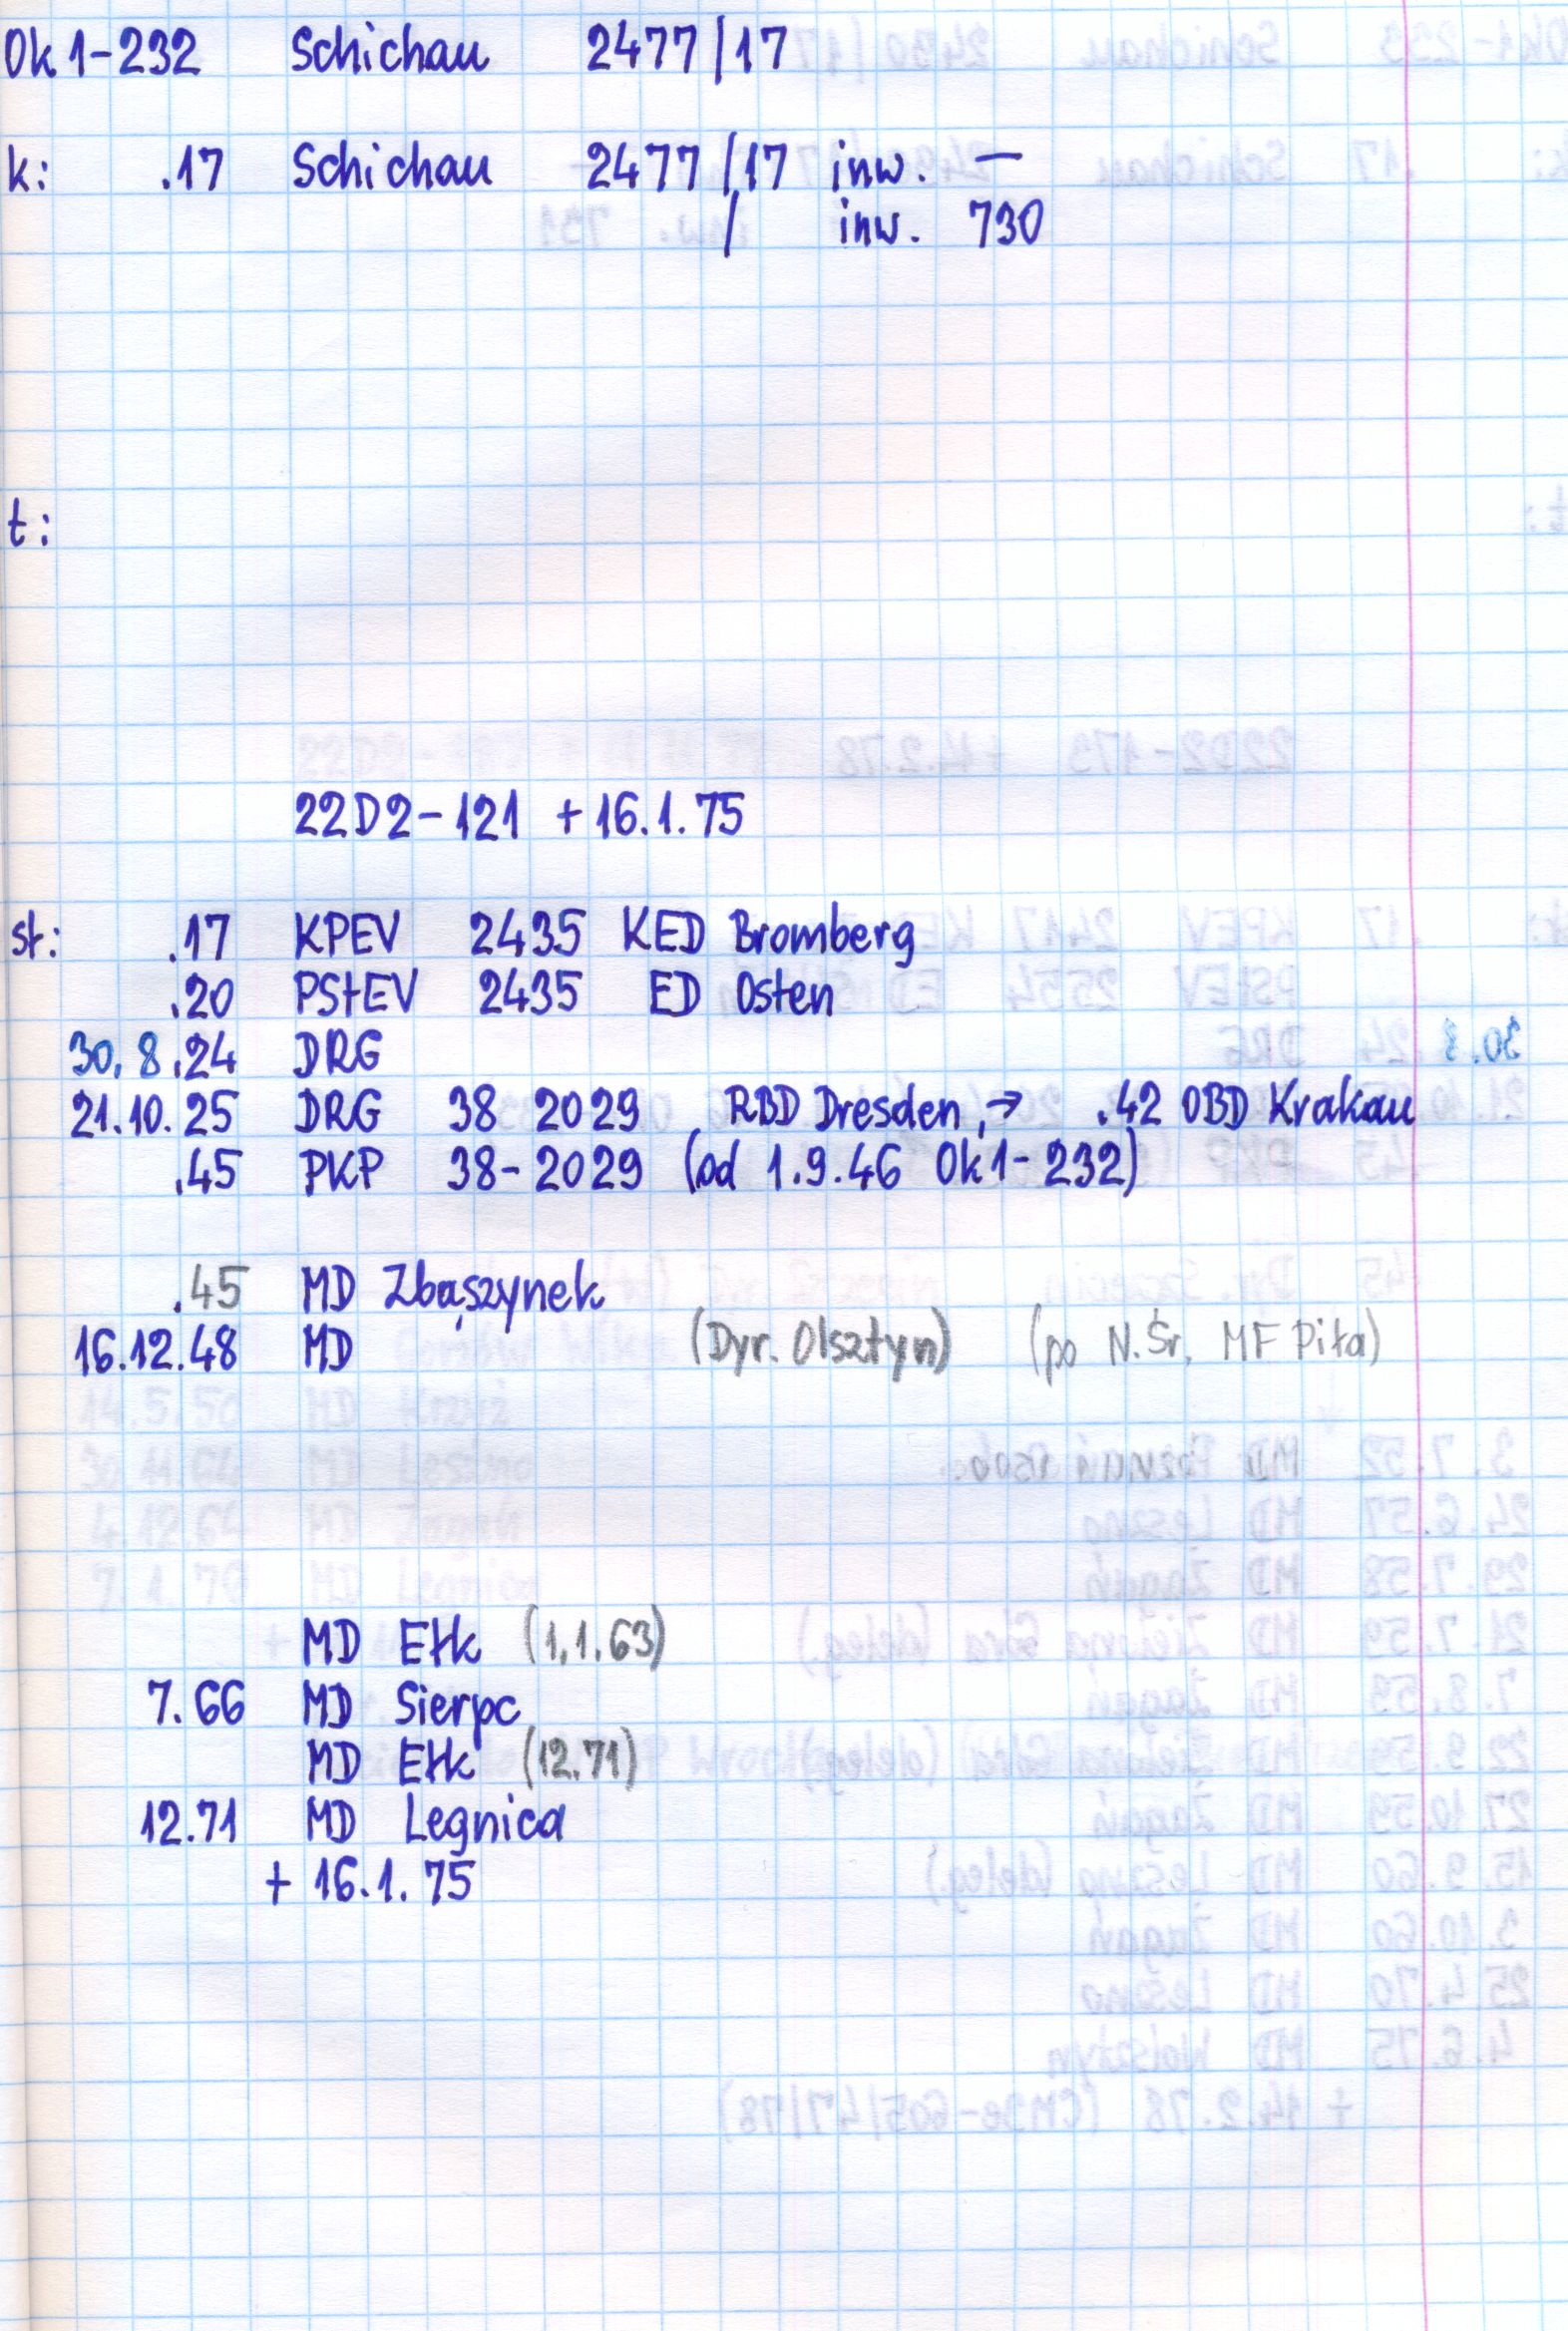 Ok1-232 Schichau 2477/17
k: .17 Schichau 2477/17 inw. —
/ inw. 730
t:
22D2-121 +16.1.75
st: .17 KPEV 2435 KED Bromberg
.20 PStEV 2435 ED Osten
30.8.24 DRG
21.10.25 DRG 38 2029 RBD Dresden, → .42 OBD Krakau
.45 PKP 38-2029 (od 1.9.46 Ok1-232)
.45 MD Zbąszynek
16.12.48 MD (Dyr. Olsztyn) (po N.Śr. MF Piła)
MD Ełk (1.1.63)
7.66 MD Sierpc
MD Ełk (12.71)
12.71 MD Legnica
+ 16.1.75